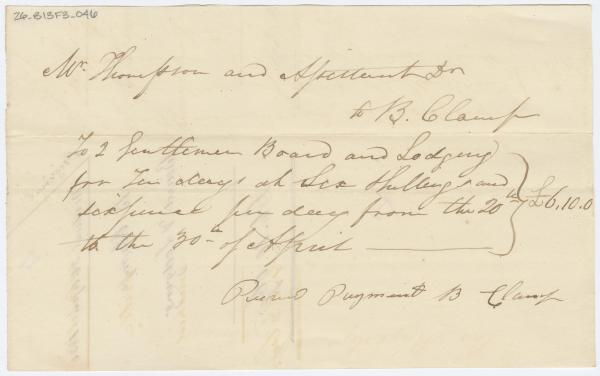 26-B13F3-046
Mr. Thompson and Assistant Dr
to B. Clamp
To 2 Gentlemen Board and Lodging
for Ten days at Six Shillings and
sixpence per day from the 20th
to the 30th of April
£6.10.0
Payment B Clamp